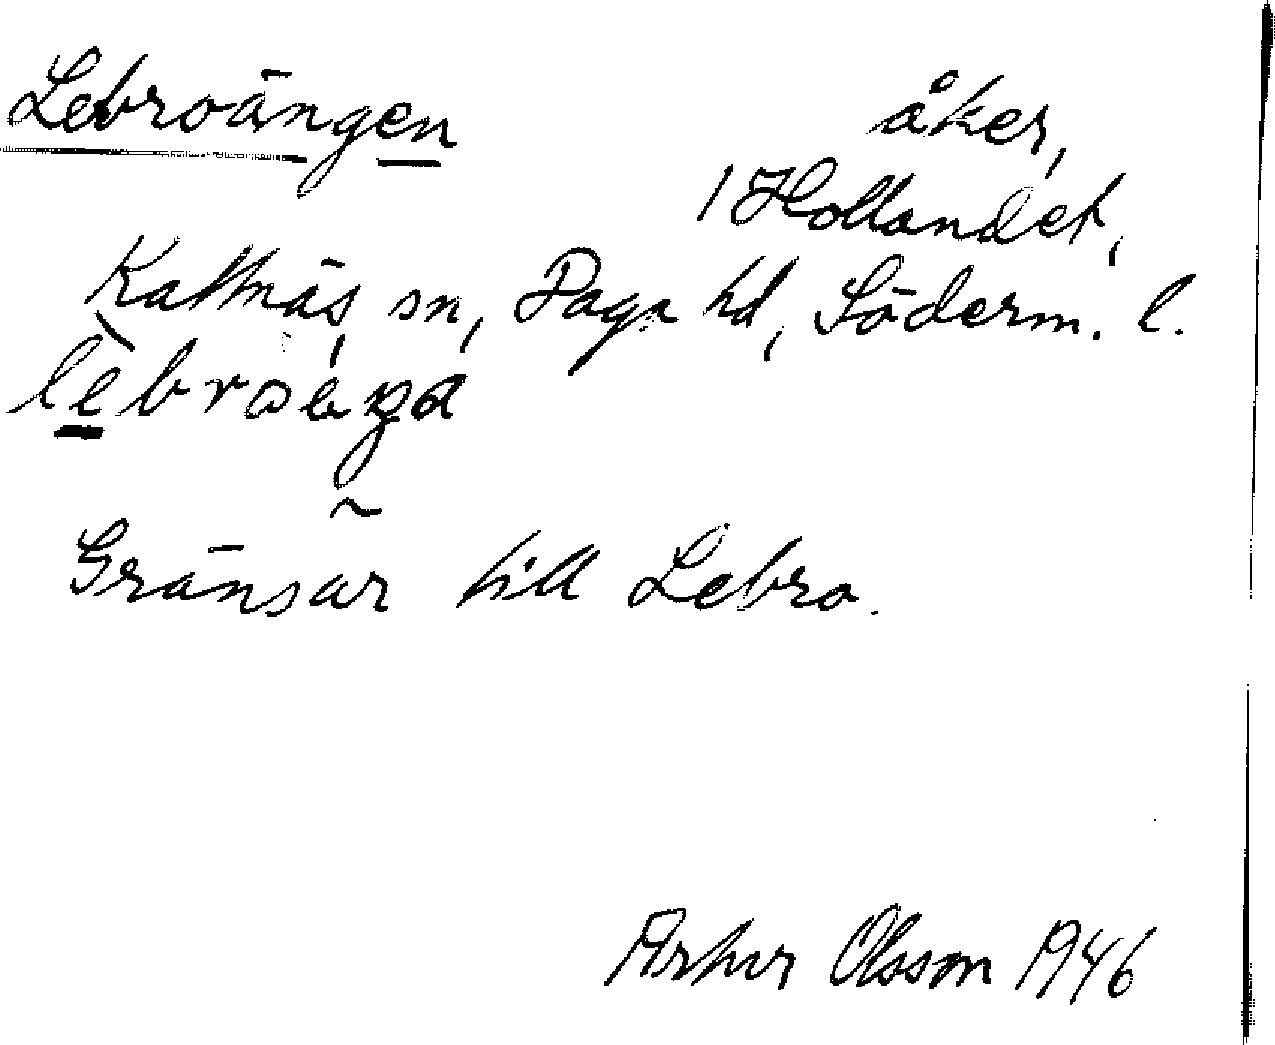 Lebroängen åker,
1 Hollandet,
Kattnäs sn, Daga hd, Söderm. l.
Gränsar till Lebro.
Arthur Olsson 1946